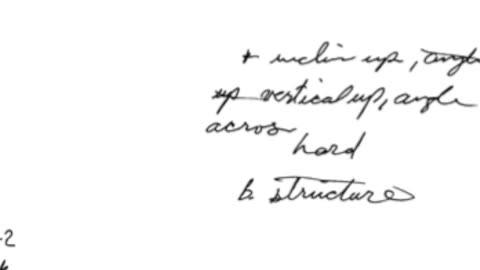 * inclin up, angle
up vertical up, angle
across
hard
b. structure
-2